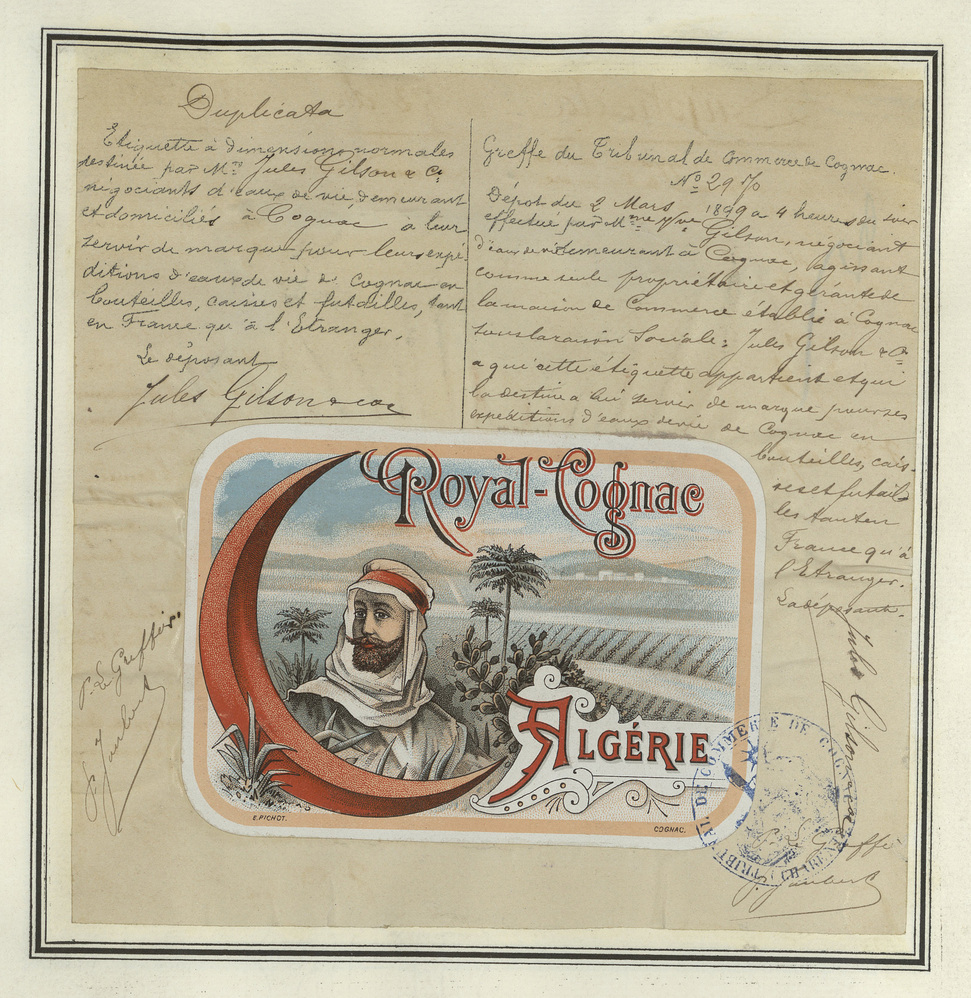 Duplicata
Etiquette à dimensions normales
destinée par Mrs Jules Gilson & Cie
négociants d'eaux de vie demeurant
et domiciliés à Cognac à leur
servir de marque pour leurs expé-
ditions d'eaux de vie de Cognac en
bouteilles, caisses et futailles, tant
en France qu'à l'Etranger.
Le déposant
Jules Gilson & Co
Greffe du Tribunal de Commerce de Cognac.
No 2970
Dépot du 2 Mars 1899 a 4 heures du soir
effectué par Mme Vve Gilson, négociant
d'eaux de vie demeurant à Cognac, agissant
comme seule propriétaire et gérante de
la maison de Commerce établie à Cognac
sous la raison Sociale: Jules Gilson & Co
a qui cette etiquette appartient et qui
la destine a lui servir de marque pour ses
expéditions d'eaux de vie de Cognac en
bouteilles, cais-
ses et futail-
les tant en
France qu'à
l'Etranger.
La déposante
Jules Gilson & Co
P. Le Greffier
P. Jaubert
Royal-Cognac
Algérie
E. PICHOT.
COGNAC.
TRIBUNAL DE COMMERCE DE COGNAC
(CHARENTE)
P. Le Greffier
P. Jaubert